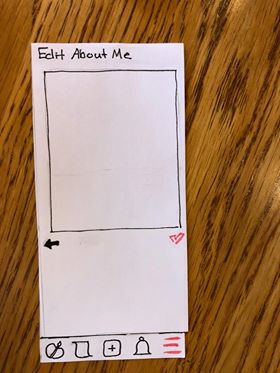 Edit About Me